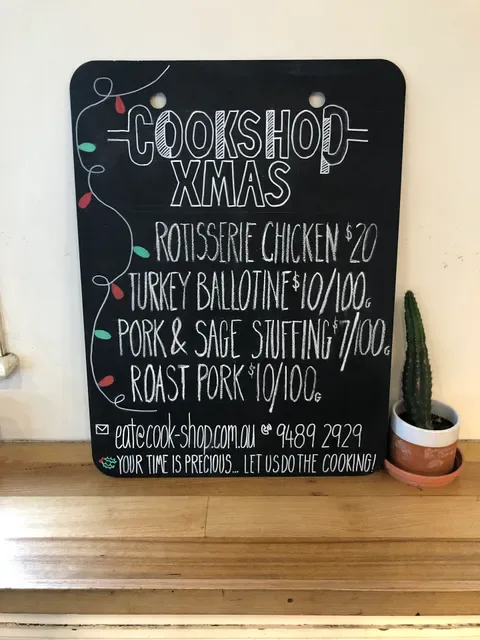 COOKSHOP
XMAS
ROTISSERIE CHICKEN $20
TURKEY BALLOTINE $10/100G
PORK & SAGE STUFFING $7/100G
ROAST PORK $10/100G
eat@cook-shop.com.au 9489 2929
YOUR TIME IS PRECIOUS... LET US DO THE COOKING!